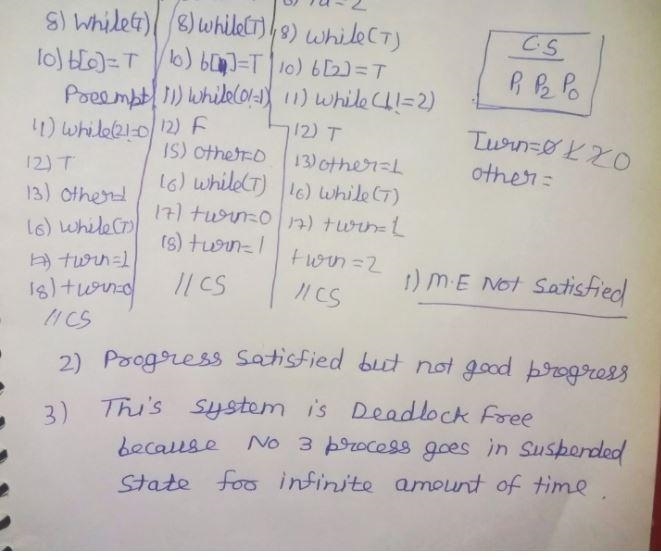 8) while(T)
10) b[0]=T
Preempt
11) while(2!=0
12) T
13) other=1
16) while(T)
17) turn=1
18) turn=0
//CS
8) while(T)
10) b[1]=T
11) while(0!=1)
12) F
15) other=0
16) while(T)
17) turn=0
18) turn=1
//CS
8) while(T)
10) b[2]=T
11) while(1!=2)
12) T
13) other=1
16) while(T)
17) turn=1
turn=2
//CS
C.S
P1 P2 P0
Turn=0 1 2 0
other=
1) M.E Not Satisfied
2) Progress Satisfied but not good progress
3) This system is Deadlock Free
because No 3 process goes in Suspended
State for infinite amount of time.